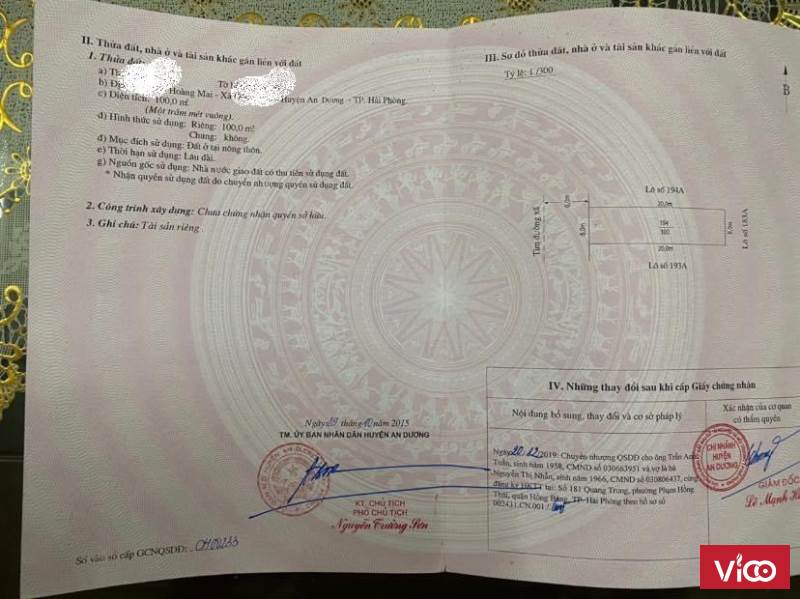 II. Thửa đất, nhà ở và tài sản khác gắn liền với đất
1. Thửa đất
a) Th Tờ
b) Đị Hoàng Mai - Xã Huyện An Dương - TP. Hải Phòng.
c) Diện tích: 100,0 m².
(Một trăm mét vuông).
d) Hình thức sử dụng: Riêng: 100,0 m²
Chung: không.
đ) Mục đích sử dụng: Đất ở tại nông thôn.
e) Thời hạn sử dụng: Lâu dài.
g) Nguồn gốc sử dụng: Nhà nước giao đất có thu tiền sử dụng đất.
* Nhận quyền sử dụng đất do chuyển nhượng quyền sử dụng đất.
2. Công trình xây dựng: Chưa chứng nhận quyền sở hữu.
3. Ghi chú: Tài sản riêng
Ngày 10 năm 2015
TM. ỦY BAN NHÂN DÂN HUYỆN AN DƯƠNG
KT. CHỦ TỊCH
PHÓ CHỦ TỊCH
Nguyễn Trường Sơn
Số vào sổ cấp GCNQSDĐ: CH00233
III. Sơ đồ thửa đất, nhà ở và tài sản khác gắn liền với đất
Tỷ lệ: 1/300
B
Lô số 194A
20,0m
Tim đường xã
Lô số 183A
20,0m
Lô số 193A
IV. Những thay đổi sau khi cấp Giấy chứng nhận
Nội dung bổ sung, thay đổi và cơ sở pháp lý
Xác nhận của cơ quan
có thẩm quyền
Ngày 20/12/2019: Chuyển nhượng QSDĐ cho ông Trần Anh
Tuấn, sinh năm 1958, CMND số 030663951 và vợ là bà
Nguyễn Thị Nhẫn, sinh năm 1966, CMND số 030806437, cùng
đăng ký HKTT tại: Số 181 Quang Trung, phường Phạm Hồng
Thái, quận Hồng Bàng, TP. Hải Phòng theo hồ sơ số
002431.CN.001
CHI NHÁNH
HUYỆN
AN DƯƠNG
GIÁM ĐỐC
Lê Mạnh
VICO